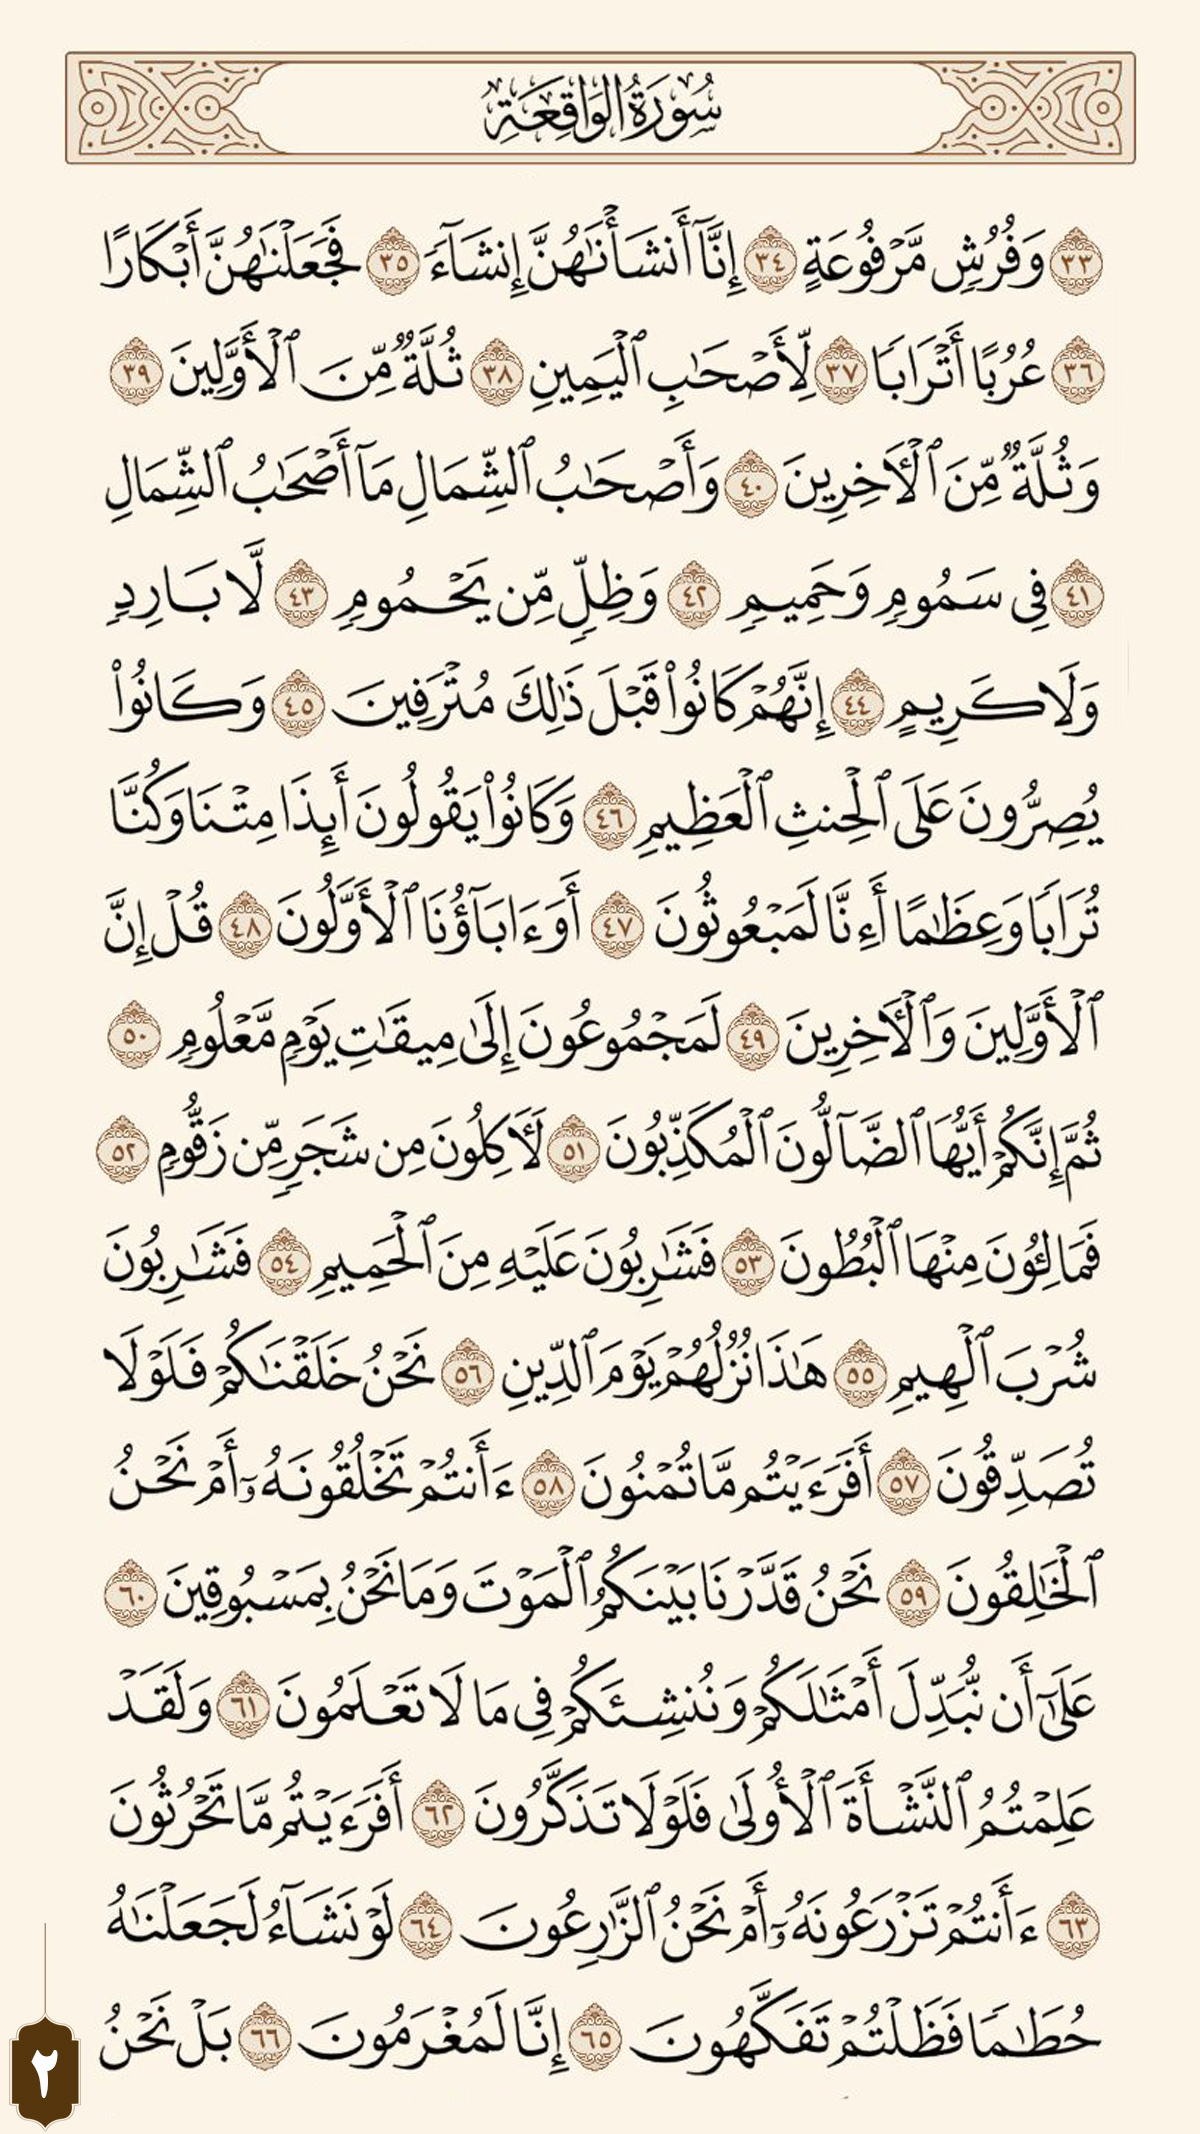 سُورَةُ الوَاقِعَةِ
٣٣ وَفُرُشٍ مَّرْفُوعَةٍ ٣٤ إِنَّآ أَنشَأْنَٰهُنَّ إِنشَآءً ٣٥ فَجَعَلْنَٰهُنَّ أَبْكَارًا
٣٦ عُرُبًا أَتْرَابًا ٣٧ لِّأَصْحَٰبِ ٱلْيَمِينِ ٣٨ ثُلَّةٌ مِّنَ ٱلْأَوَّلِينَ ٣٩
وَثُلَّةٌ مِّنَ ٱلْـَٔاخِرِينَ ٤٠ وَأَصْحَٰبُ ٱلشِّمَالِ مَآ أَصْحَٰبُ ٱلشِّمَالِ
٤١ فِى سَمُومٍ وَحَمِيمٍ ٤٢ وَظِلٍّ مِّن يَحْمُومٍ ٤٣ لَّا بَارِدٍ
وَلَا كَرِيمٍ ٤٤ إِنَّهُمْ كَانُوا۟ قَبْلَ ذَٰلِكَ مُتْرَفِينَ ٤٥ وَكَانُوا۟
يُصِرُّونَ عَلَى ٱلْحِنثِ ٱلْعَظِيمِ ٤٦ وَكَانُوا۟ يَقُولُونَ أَئِذَا مِتْنَا وَكُنَّا
تُرَابًا وَعِظَٰمًا أَءِنَّا لَمَبْعُوثُونَ ٤٧ أَوَءَابَآؤُنَا ٱلْأَوَّلُونَ ٤٨ قُلْ إِنَّ
ٱلْأَوَّلِينَ وَٱلْـَٔاخِرِينَ ٤٩ لَمَجْمُوعُونَ إِلَىٰ مِيقَٰتِ يَوْمٍ مَّعْلُومٍ ٥٠
ثُمَّ إِنَّكُمْ أَيُّهَا ٱلضَّآلُّونَ ٱلْمُكَذِّبُونَ ٥١ لَـَٔاكِلُونَ مِن شَجَرٍ مِّن زَقُّومٍ ٥٢
فَمَالِـُٔونَ مِنْهَا ٱلْبُطُونَ ٥٣ فَشَٰرِبُونَ عَلَيْهِ مِنَ ٱلْحَمِيمِ ٥٤ فَشَٰرِبُونَ
شُرْبَ ٱلْهِيمِ ٥٥ هَٰذَا نُزُلُهُمْ يَوْمَ ٱلدِّينِ ٥٦ نَحْنُ خَلَقْنَٰكُمْ فَلَوْلَا
تُصَدِّقُونَ ٥٧ أَفَرَءَيْتُم مَّا تُمْنُونَ ٥٨ ءَأَنتُمْ تَخْلُقُونَهُۥٓ أَمْ نَحْنُ
ٱلْخَٰلِقُونَ ٥٩ نَحْنُ قَدَّرْنَا بَيْنَكُمُ ٱلْمَوْتَ وَمَا نَحْنُ بِمَسْبُوقِينَ ٦٠
عَلَىٰٓ أَن نُّبَدِّلَ أَمْثَٰلَكُمْ وَنُنشِئَكُمْ فِى مَا لَا تَعْلَمُونَ ٦١ وَلَقَدْ
عَلِمْتُمُ ٱلنَّشْأَةَ ٱلْأُولَىٰ فَلَوْلَا تَذَكَّرُونَ ٦٢ أَفَرَءَيْتُم مَّا تَحْرُثُونَ
٦٣ ءَأَنتُمْ تَزْرَعُونَهُۥٓ أَمْ نَحْنُ ٱلزَّٰرِعُونَ ٦٤ لَوْ نَشَآءُ لَجَعَلْنَٰهُ
حُطَٰمًا فَظَلْتُمْ تَفَكَّهُونَ ٦٥ إِنَّا لَمُغْرَمُونَ ٦٦ بَلْ نَحْنُ
٢